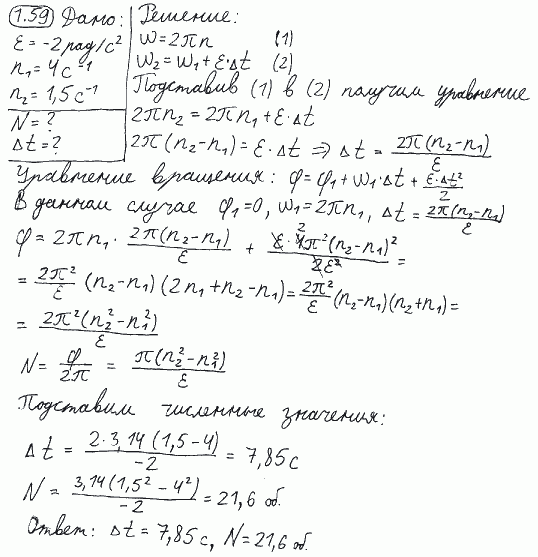 1.59 Дано:
ε = -2 рад/с²
n₁ = 4 с⁻¹
n₂ = 1,5 с⁻¹
N = ?
Δt = ?
Решение:
ω = 2πn (1)
ω₂ = ω₁ + ε·Δt (2)
Подставив (1) в (2) получим уравнение
2πn₂ = 2πn₁ + ε·Δt
2π(n₂-n₁) = ε·Δt ⇒ Δt = 2π(n₂-n₁)/ε
Уравнение вращения: φ = φ₁ + ω₁·Δt + ε·Δt²/2
В данном случае φ₁=0, ω₁=2πn₁, Δt = 2π(n₂-n₁)/ε
φ = 2πn₁ · 2π(n₂-n₁)/ε + ε·4π²(n₂-n₁)²/2ε² =
= 2π²/ε (n₂-n₁)(2n₁+n₂-n₁) = 2π²/ε (n₂-n₁)(n₂+n₁) =
= 2π²(n₂²-n₁²)/ε
N = φ/2π = π(n₂²-n₁²)/ε
Подставим численные значения:
Δt = 2·3,14(1,5-4)/-2 = 7,85 с
N = 3,14(1,5²-4²)/-2 = 21,6 об.
Ответ: Δt = 7,85 с, N = 21,6 об.